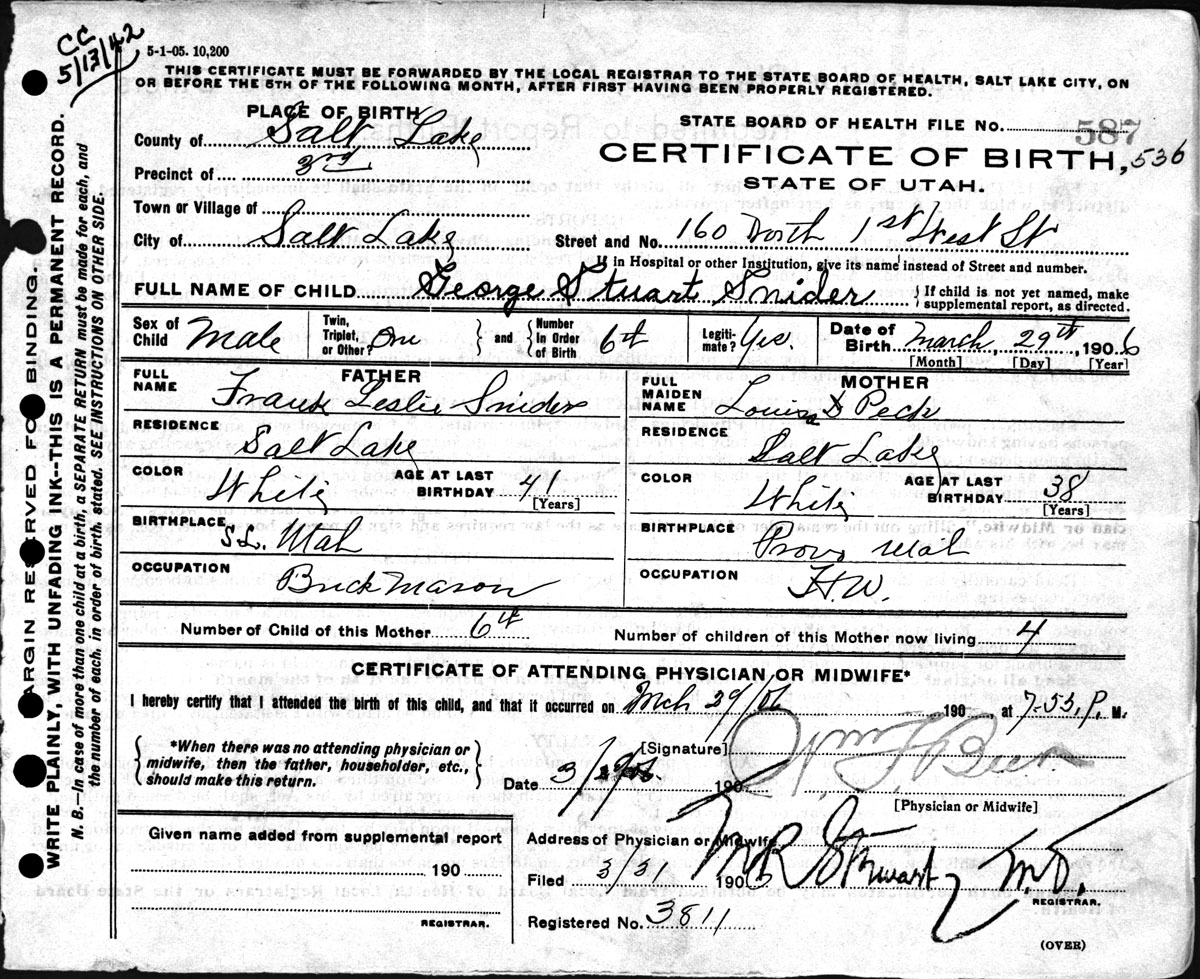 CC
5/13/42
5-1-05. 10,200
THIS CERTIFICATE MUST BE FORWARDED BY THE LOCAL REGISTRAR TO THE STATE BOARD OF HEALTH, SALT LAKE CITY, ON
OR BEFORE THE 5TH OF THE FOLLOWING MONTH, AFTER FIRST HAVING BEEN PROPERLY REGISTERED.
PLACE OF BIRTH
County of Salt Lake
Precinct of 3rd
Town or Village of
City of Salt Lake
STATE BOARD OF HEALTH FILE No. 587
CERTIFICATE OF BIRTH, 536
STATE OF UTAH.
Street and No. 160 North 1st West St
If in Hospital or other Institution, give its name instead of Street and number.
FULL NAME OF CHILD George Stuart Snider { If child is not yet named, make
supplemental report, as directed.
Sex of Child Male
Twin, Triplet, or Other? One } and { Number In Order of Birth 6th
Legiti-mate? Yes.
Date of Birth March, 29th, 1906
[Month] [Day] [Year]
FATHER
FULL NAME Frank Leslie Snider
RESIDENCE Salt Lake
COLOR White AGE AT LAST BIRTHDAY 41
[Years]
BIRTHPLACE S.L. Utah
OCCUPATION Brick Mason
MOTHER
FULL MAIDEN NAME Louisa D Peck
RESIDENCE Salt Lake
COLOR White AGE AT LAST BIRTHDAY 38
[Years]
BIRTHPLACE Provo Utah
OCCUPATION H.W.
Number of Child of this Mother 6th Number of children of this Mother now living 4
CERTIFICATE OF ATTENDING PHYSICIAN OR MIDWIFE*
I hereby certify that I attended the birth of this child, and that it occurred on Mch 29/06 190 at 7-53, P. M.
{ *When there was no attending physician or
midwife, then the father, householder, etc.,
should make this return. }
[Signature]
Date 3/ 190
[Physician or Midwife]
Address of Physician or Midwife
Filed 3/31 1906 M R Stewart M.D.
REGISTRAR.
Registered No. 3811
(OVER)
Given name added from supplemental report
190
REGISTRAR.
MARGIN RESERVED FOR BINDING.
WRITE PLAINLY, WITH UNFADING INK--THIS IS A PERMANENT RECORD.
N. B.--In case of more than one child at a birth, a SEPARATE RETURN must be made for each, and
the number of each, in order of birth, stated. SEE INSTRUCTIONS ON OTHER SIDE.